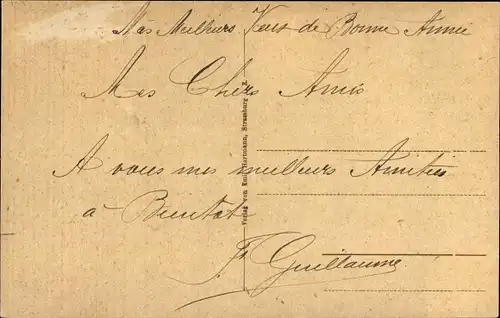 Mes Meilleurs Vœux de Bonne Année
Mes Chers Amis
A vous mes meilleurs Amitiés
à Bientot
Fr Guillaume
Verlag von Emil Hartmann, Strassburg i. E.